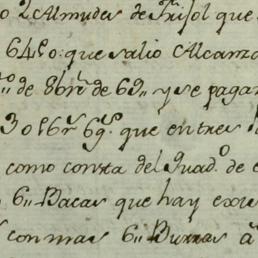 o 2 Almudes de Frisol que
64 S.o: que salio Alcanza
,,o de 8bre de 69,, y se pagar
3 o 16 r.s 69 s. que en tres
como consta del Quad.o de
6,, Bacas que hay
con mas 6,, Burras